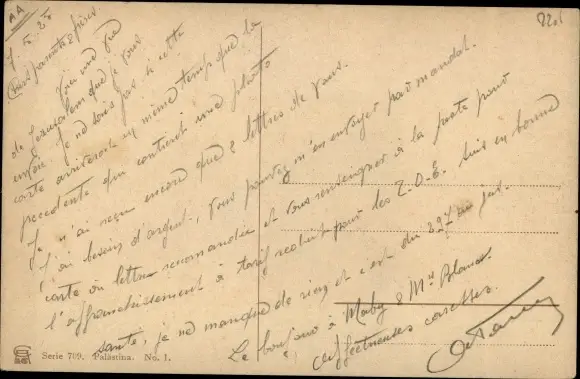 AA
7. 5. 25
Chers parents & frères.
Voici une vue
de Jerusalem que je vous
envoie. Je ne sais pas si cette
carte arriverait en même temps que la
precedente qui contient une photo
Je n'ai reçu encore que 2 lettres de vous.
J'ai besoin d'argent, vous pouvez m'en envoyer par mandat.
carte ou lettre recomandée et vous renseigner à la poste pour
l'affranchissement à tarif reduit pour les T.O.E. suis en bonne
santé, je ne manque de rien et c'est du 297 au jus.
Le bonjour à Maby & Mr Blanc.
affectueuses caresses.
Serie 709. Palästina. No. 1.